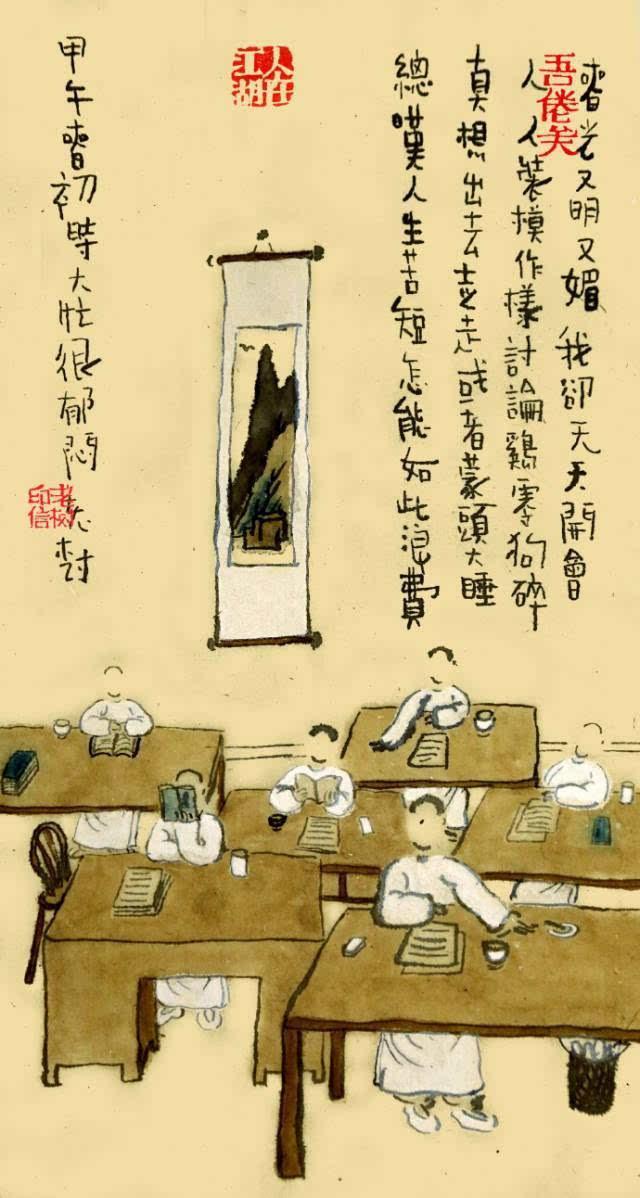 吾倦矣
春光又明又媚我卻天天開會
人人裝模作樣討論鷄零狗碎
真想出去走走或者蒙頭大睡
總嘆人生苦短怎能如此浪費
人在江湖
甲午春初時大壯很郁悶老樹
老树印信